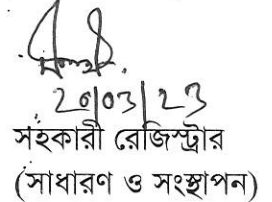 20/03/23
সহকারী রেজিস্ট্রার
(সাধারণ ও সংস্থাপন)